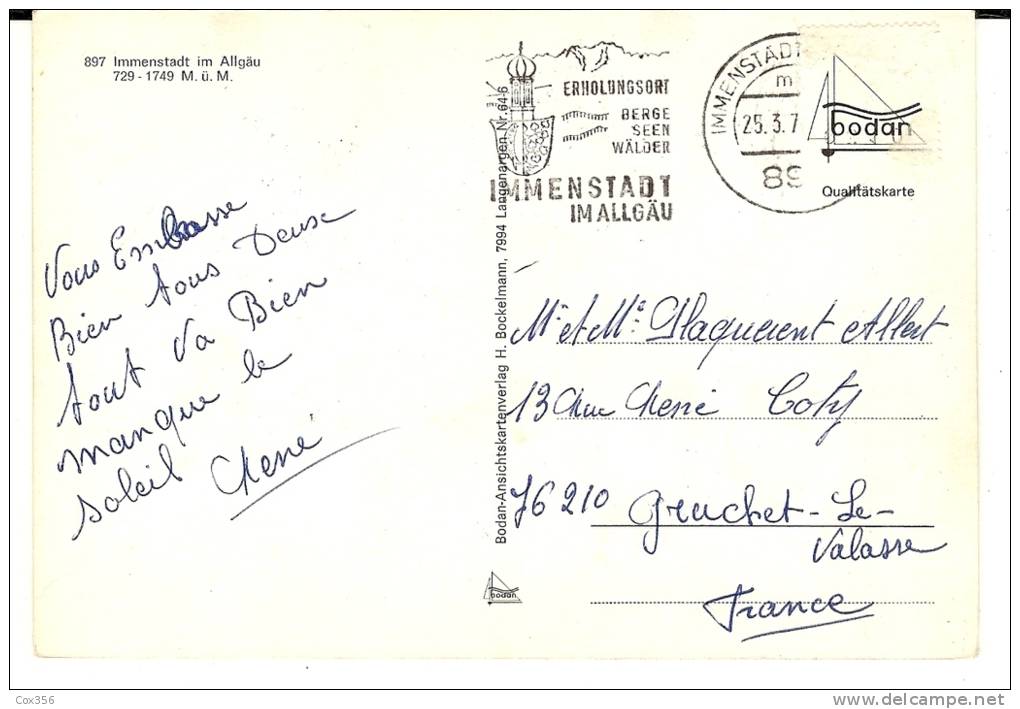 897 Immenstadt im Allgäu
729 - 1749 M. ü. M.
ERHOLUNGSORT
BERGE
SEEN
WÄLDER
IMMENSTADT
IM ALLGÄU
IMMENSTADT
m
25.3.7
89
bodan
Qualitätskarte
Bodan-Ansichtskartenverlag H. Bockelmann, 7994 Langenargen Nr. 64-6
Vous Embrasse
Bien tous Deux
tout Va Bien
manque le
soleil René
Mr et Me Plaquevent Albert
13 Rue René Coty
76210 Gruchet-Le-
Valasse
France
bodan
Cox356
www.delcampe.net